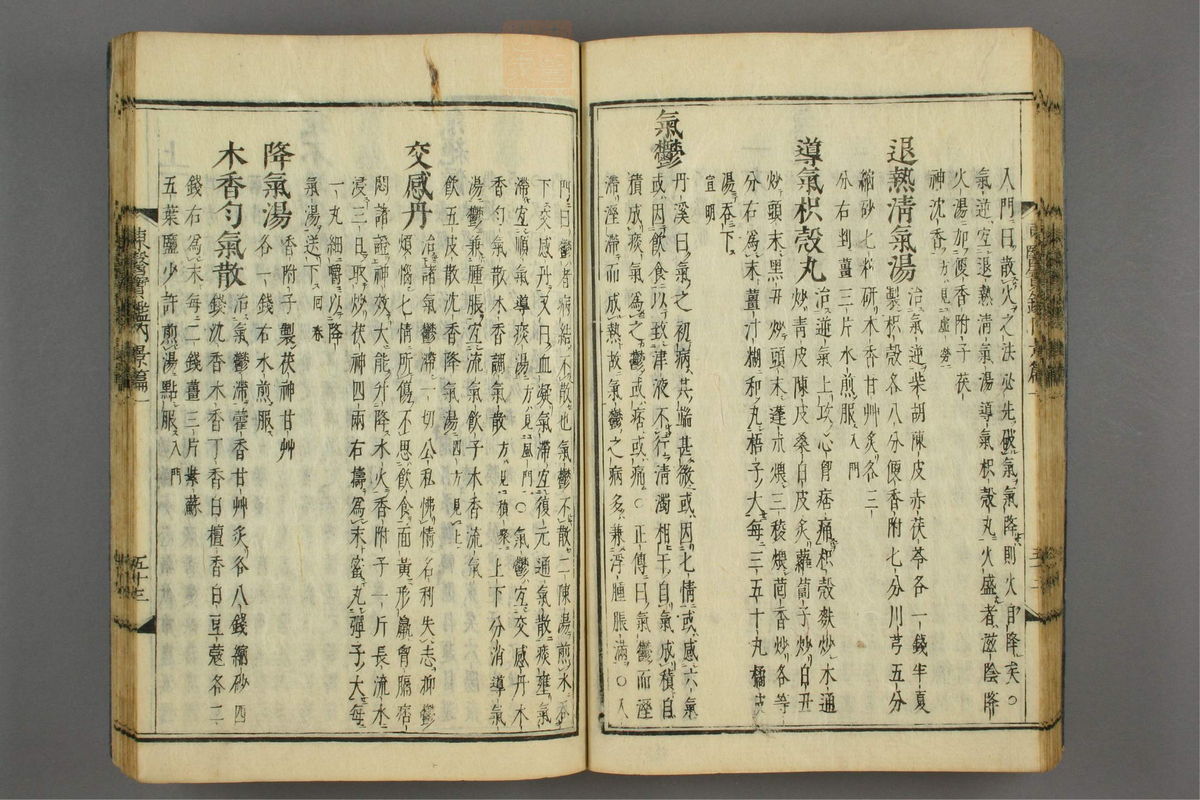 入門曰散火之法必先破氣氣降則火自降矣○
氣逆宜退熱淸氣湯導氣枳殼丸火盛者滋陰降
火湯加便香附子茯
神沈香方見虛勞
退熱淸氣湯治氣逆柴胡陳皮赤茯苓各一錢半夏
製枳殼各八分便香附七分川芎五分
縮砂七粒研木香甘艸炙各三
分右剉薑三片水煎服入門
導氣枳殼丸治逆氣上攻心胷痞痛枳殼麩炒木通
炒靑皮陳皮桑白皮炙蘿蔔子炒白丑
炒頭末黑丑炒頭末蓬朮煨三稜煨茴香炒各等
分右爲末薑汁糊和丸梧子大每三五十丸橘皮
湯吞下
宣明
氣鬱丹溪曰氣之初病其端甚微或因七情或感六氣
或因飮食以致津液不行淸濁相干自氣成積自
積成痰氣爲之鬱或痞或痛○正傳曰氣鬱而溼
滯溼滯而成熱故氣鬱之病多兼浮腫脹滿○入
門曰鬱者病結不散也氣鬱不散二陳湯煎水吞
下交感丹又曰血凝氣滯宜復元通氣散痰壅氣
滯宜順氣導痰湯方見風門○氣鬱宜交感丹木
香勻氣散木香調氣散方見積聚上下分消導氣
湯鬱兼腫脹宜流氣飮子木香流氣
飮五皮散沈香降氣湯四方見上
交感丹治諸氣鬱滯一切公私怫情名利失志抑鬱
煩惱七情所傷不思飮食面黃形羸胷膈痞
悶諸證神效大能升降水火香附子一斤長流水
浸三日取炒茯神四兩右擣爲末蜜丸彈子大每
一丸細嚼以降
氣湯送下回春
降氣湯香附子製茯神甘艸
各一錢右水煎服
木香勻氣散治氣鬱滯藿香甘艸炙各八錢縮砂四
錢沈香木香丁香白檀香白豆蔻各二
錢右爲末每二錢薑三片紫蘇
五葉鹽少許煎湯點服入門
東醫寶鑑內景篇一
五十三